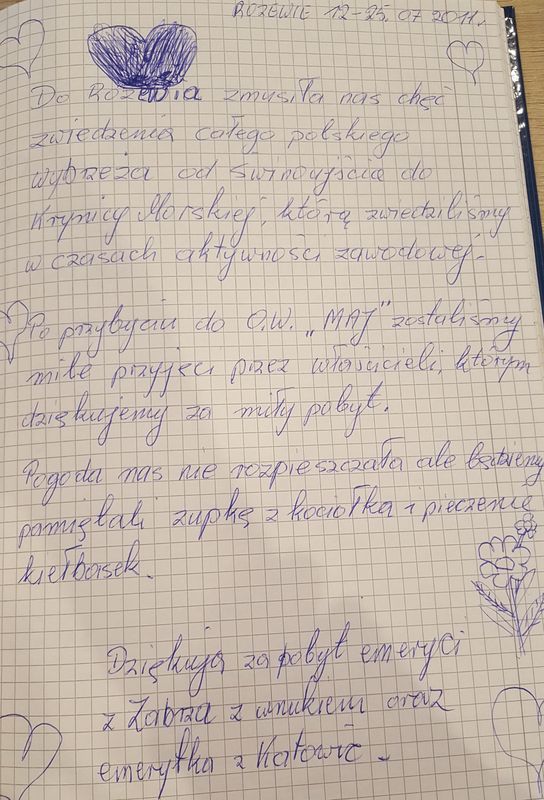 ROZEWIE 12-25.07 2011r.
Do Rozewia zmusiła nas chęć
zwiedzenia całego polskiego
wybrzeża od Świnoujścia do
Krynicy Morskiej, którą zwiedziliśmy
w czasach aktywności zawodowej.
Po przybyciu do O.W. „MAJ" zostaliśmy
mile przyjęci przez właścicieli, którym
dziękujemy za miły pobyt.
Pogoda nas nie rozpieszczała ale będziemy
pamiętali zupkę z kociołka i pieczenie
kiełbasek.
Dziękują za pobyt emeryci
z Zabrza z wnukiem oraz
emerytka z Katowic.